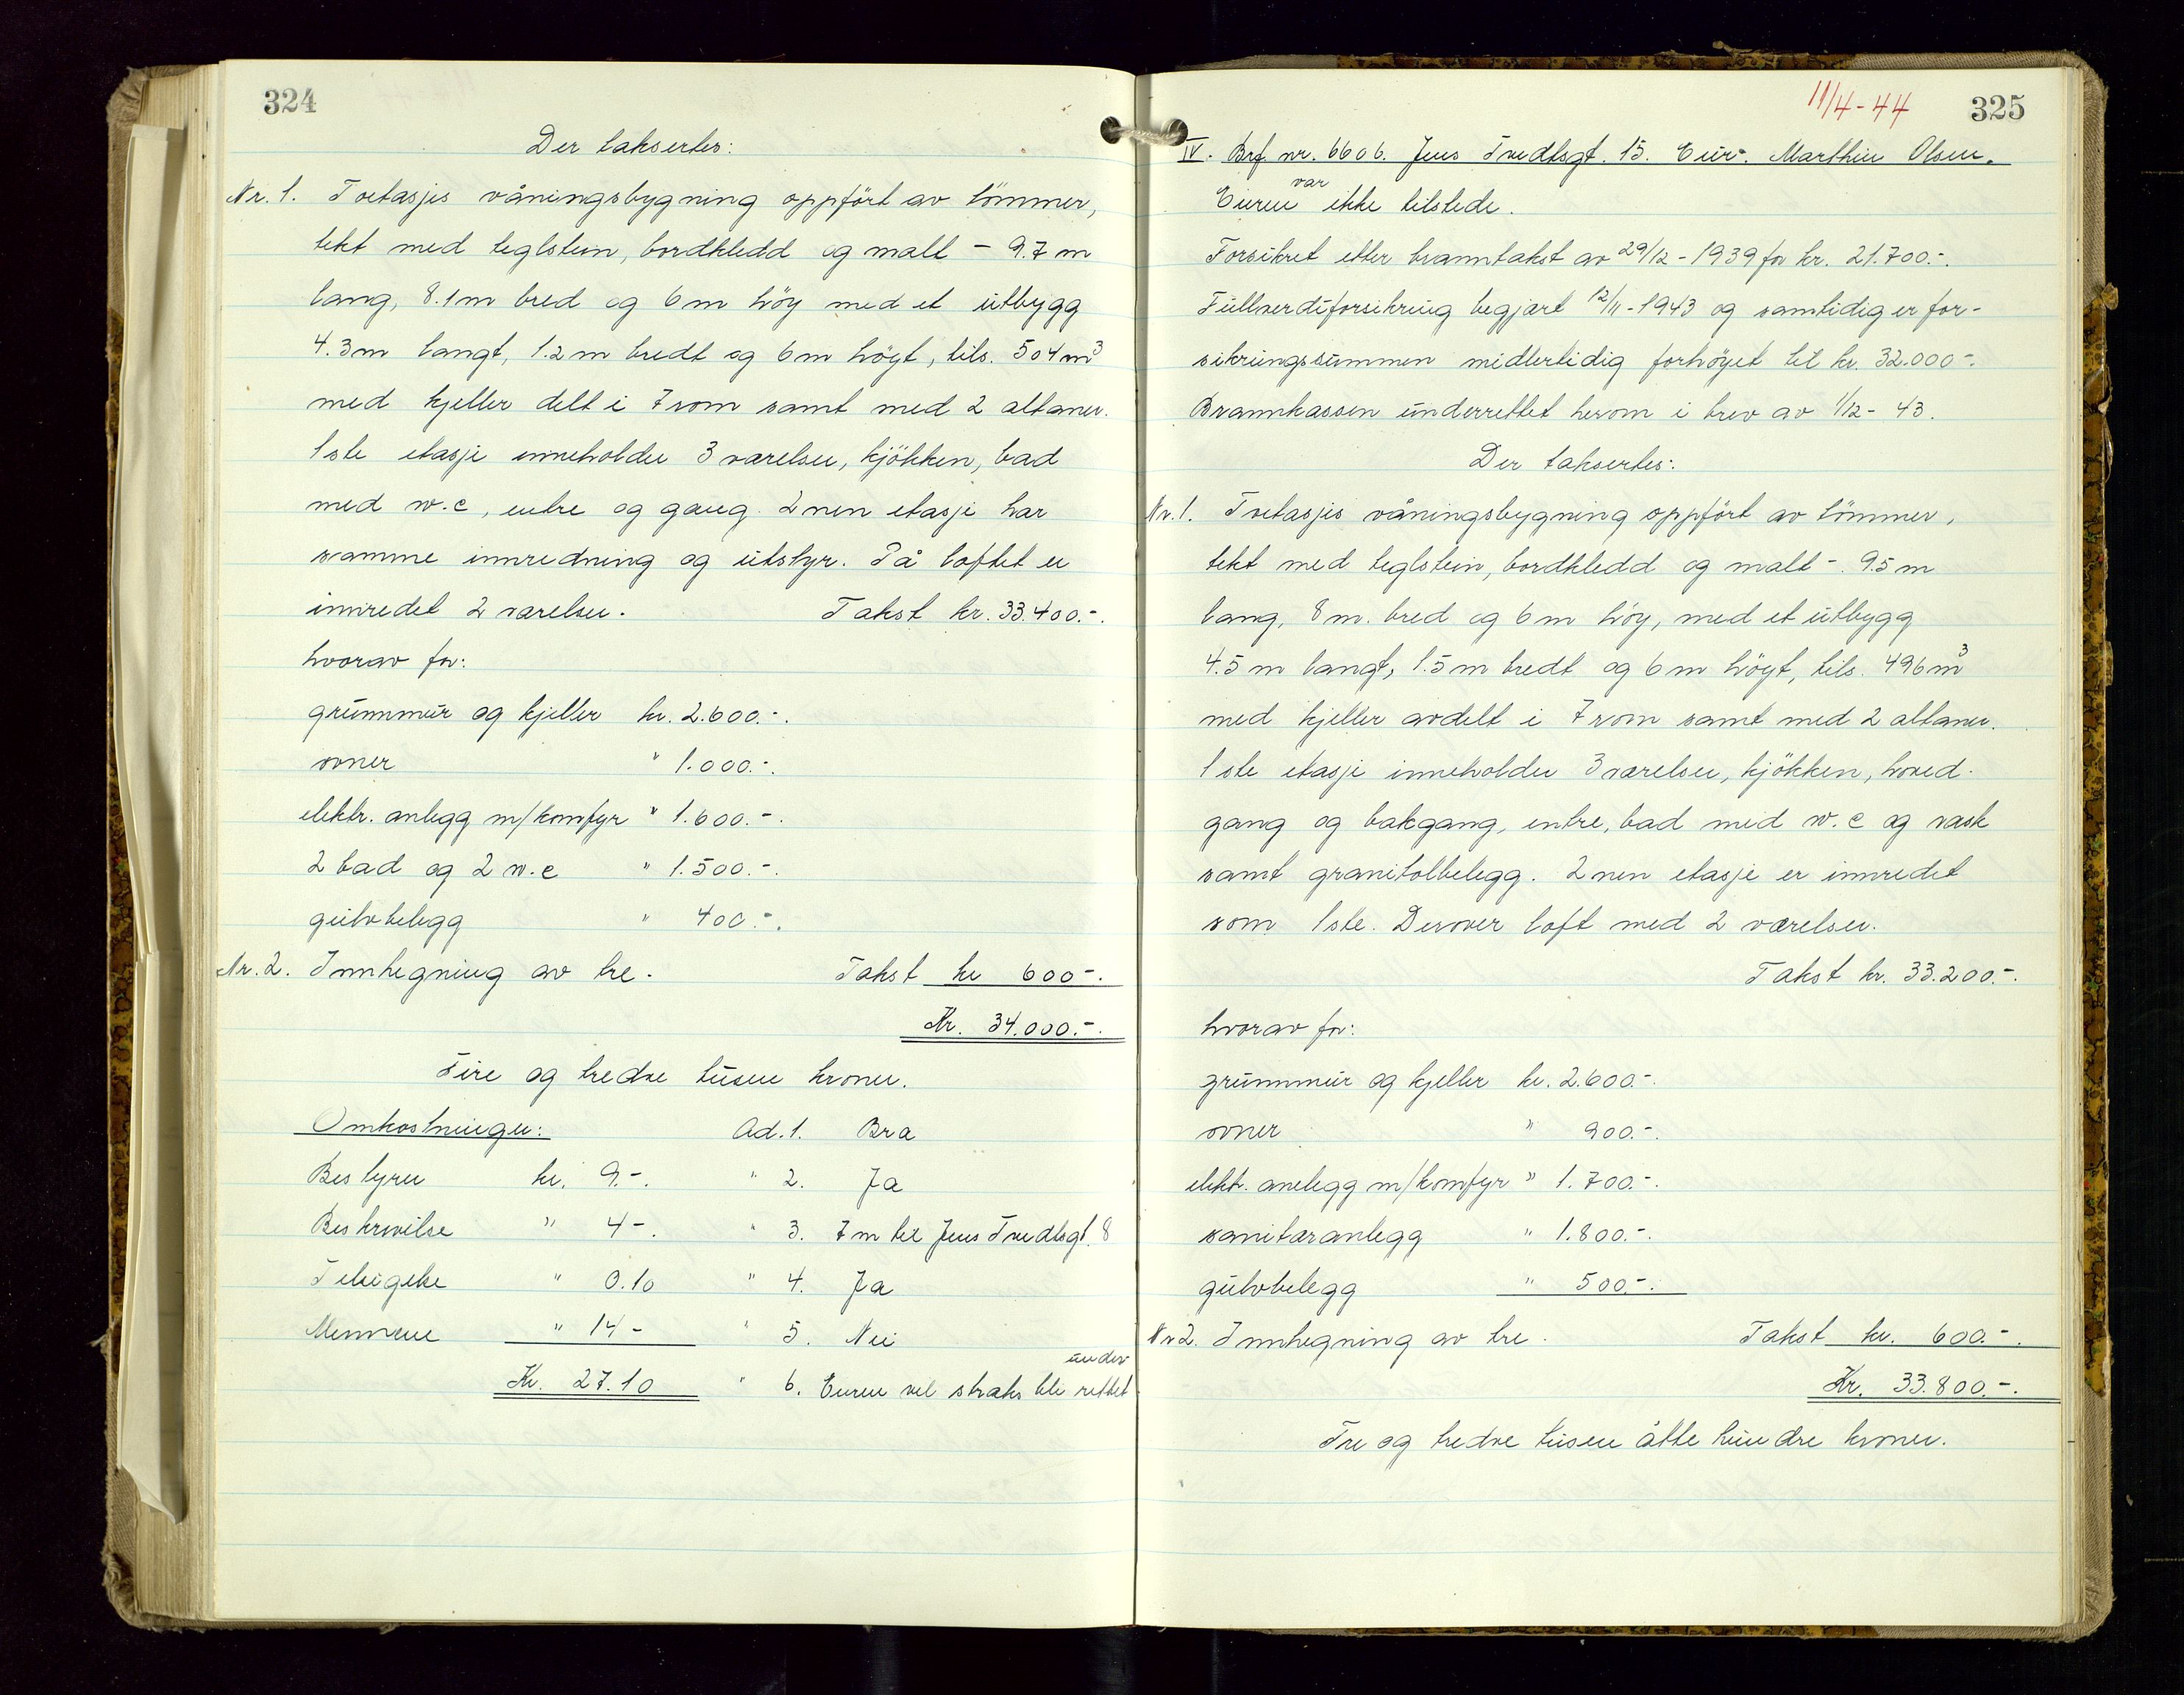 324
Der taksertes:
Nr. 1. Toetasjes våningsbygning oppfört av tömmer,
tekt med teglstein, bordkledd og malt - 9.7 m
lang, 8.1 m bred og 6 m höy med et utbygg
4.3 m langt, 1.2 m bredt og 6 m höyt, tils. 504 m³
med kjeller delt i 7 rom samt med 2 altaner.
1ste etasje inneholder 3 værelser, kjökken, bad
med w.c, entre og gang. 2nen etasje har
samme innredning og utstyr. På loftet er
innredet 2 værelser. Takst kr. 33.400.-.
hvorav for:
grunnmur og kjeller kr. 2.600.-.
ovner " 1.000.-.
elektr. anlegg m/komfyr " 1.600.-.
2 bad og 2 w.c " 1.500.-.
gulvbelegg " 400.-.
Nr. 2. Innhegning av tre. Takst kr 600-.
Kr. 34.000.-.
Fire og tredve tusen kroner.
Omkostninger: Ad. 1. Bra
Bestyrer kr. 9.-. " 2. Ja
Beskrivelse " 4-. " 3. 7 m til Jens Tvedtsgt. 8
" 0.10 " 4. Ja
Mennene " 14- " 5. Nei
Kr. 27.10 " 6. Eieren vil straks bli underrettet
11/4-44 325
IV. Brf. nr. 6606. Jens Tvedtsgt. 15. Eier. Marthin Olsen.
Eieren var ikke tilstede.
Forsikret etter branntakst av 29/12-1939 for kr. 21.700.-.
Fullverdiforsikring begjært 12/11-1943 og samtidig er for-
sikringssummen midlertidig forhöyet til kr. 32.000-.
Brannkassen underrettet herom i brev av 1/12-43.
Der taksertes:
Nr. 1. Toetasjes våningsbygning oppfört av tömmer,
tekt med teglstein, bordkledd og malt -. 9.5 m
lang, 8 m. bred og 6 m höy, med et utbygg
4.5 m langt, 1.5 m bredt og 6 m höyt, tils. 496 m³
med kjeller avdelt i 7 rom samt med 2 altaner.
1ste etasje inneholder 3 værelser, kjökken, hoved-
gang og bakgang, entre, bad med w.c og vask
samt granitolbelegg. 2nen etasje er innredet
som 1ste. Derover loft med 2 værelser.
Takst kr. 33.200.-.
hvorav for:
grunnmur og kjeller kr. 2.600.-.
ovner " 900.-.
elekt. anelegg m/komfyr " 1.700.-.
sanitæranlegg " 1.800.-.
gulvbelegg " 500.-.
Nr 2. Innhegning av tre. Takst kr. 600.-.
Kr. 33.800.-.
Tre og tredve tusen åtte hundre kroner.